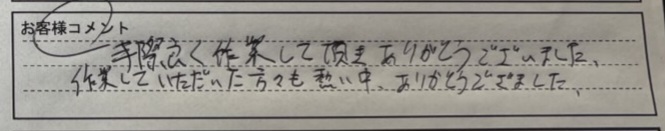 お客様コメント
手際良く作業して頂きありがとうございました、
作業していただいた方々も熱い中、ありがとうござました、